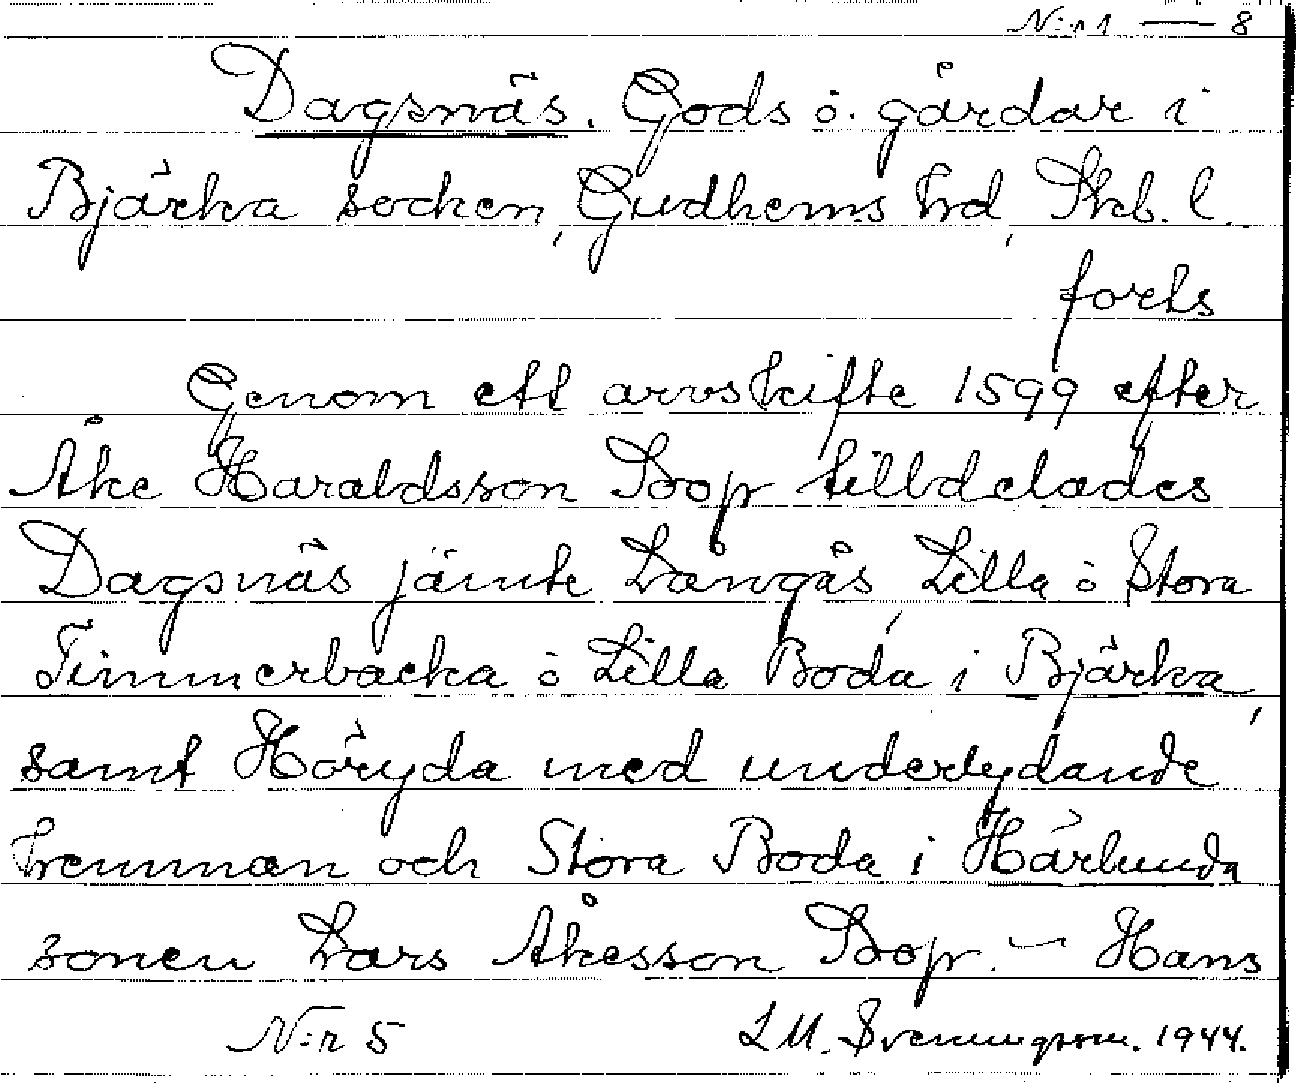 N:r 1 — 8
Dagsnäs. Gods o. gårdar i
Bjärka socken, Gudhems hrd, Skb. l.
forts
Genom ett arvskifte 1599 efter
Åke Haraldsson Soop tilldelades
Dagsnäs jämte Långås, Lilla o Stora
Timmerbacka o Lilla Boda i Bjärka,
samt Höryda med underlydande
hemman och Stora Boda i Härlunda
sonen Lars Åkesson Soop. — Hans
N:r 5 L M. Svenungsson. 1944.